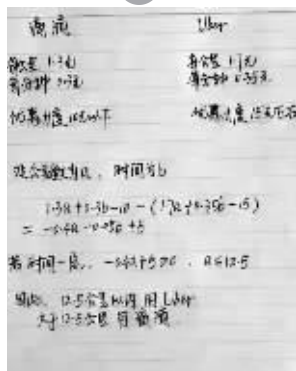 滴滴 Uber
每公里 1.3元 每公里 1.7元
每分钟 0.3元 每分钟 0.35元
优惠力度 10元以下 优惠力度 15元左右
设公里数为a，时间为b
1.3a+0.3b-10-(1.7a+0.35b-15)
= -0.4a-0.05b+5
若时间一定，-0.4a+5≥0，a≤12.5
因此，12.5公里以内用Uber
大于12.5公里用滴滴